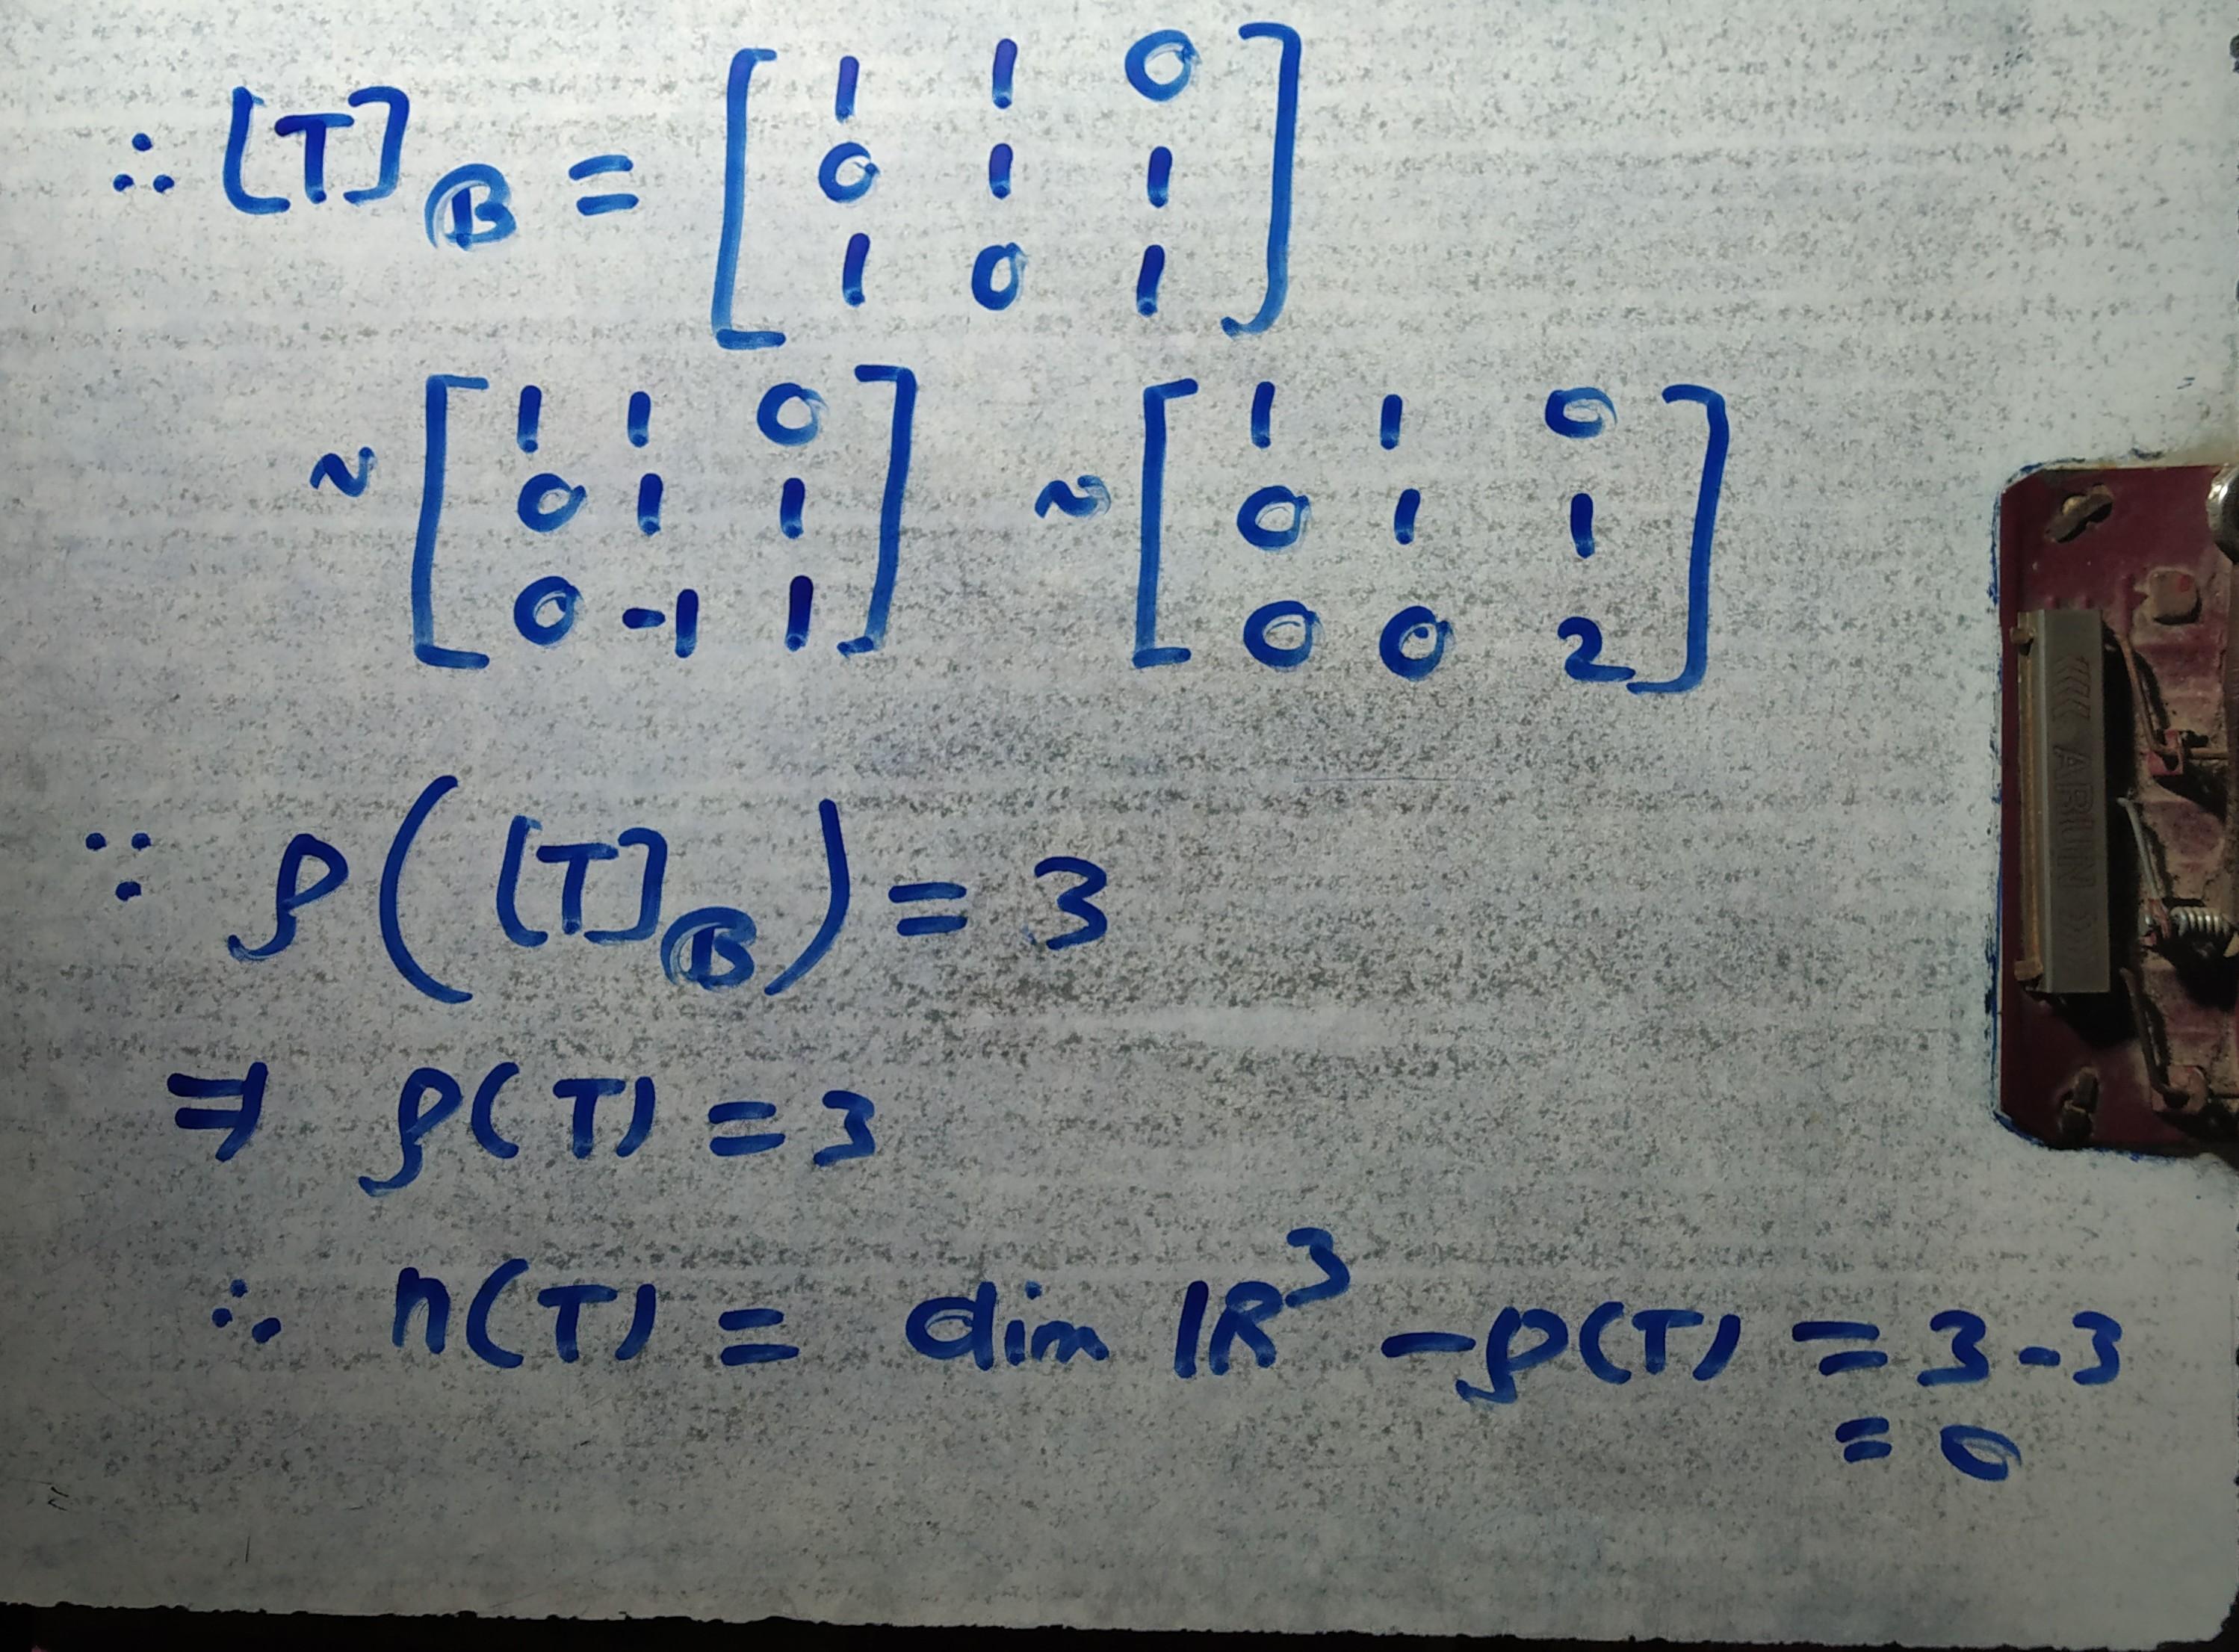 ∴ [T]_B = [ 1 1 0
0 1 1
1 0 1 ]
~ [ 1 1 0 ~ [ 1 1 0
0 1 1 0 1 1
0 -1 1 ] 0 0 2 ]
∵ ρ([T]_B) = 3
⇒ ρ(T) = 3
∴ n(T) = dim ℝ³ - ρ(T) = 3-3
= 0
<<< ARUN >>>